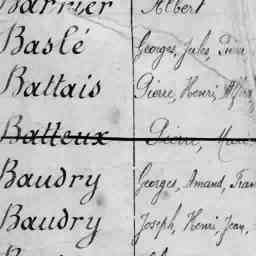 Barrier Albert
Baslé Georges, Jules, Pierre
Battais Pierre, Henri, Alfred,
Batteux Pierre, Marie
Baudry Georges, Amand, Fran
Baudry Joseph, Henri, Jean,